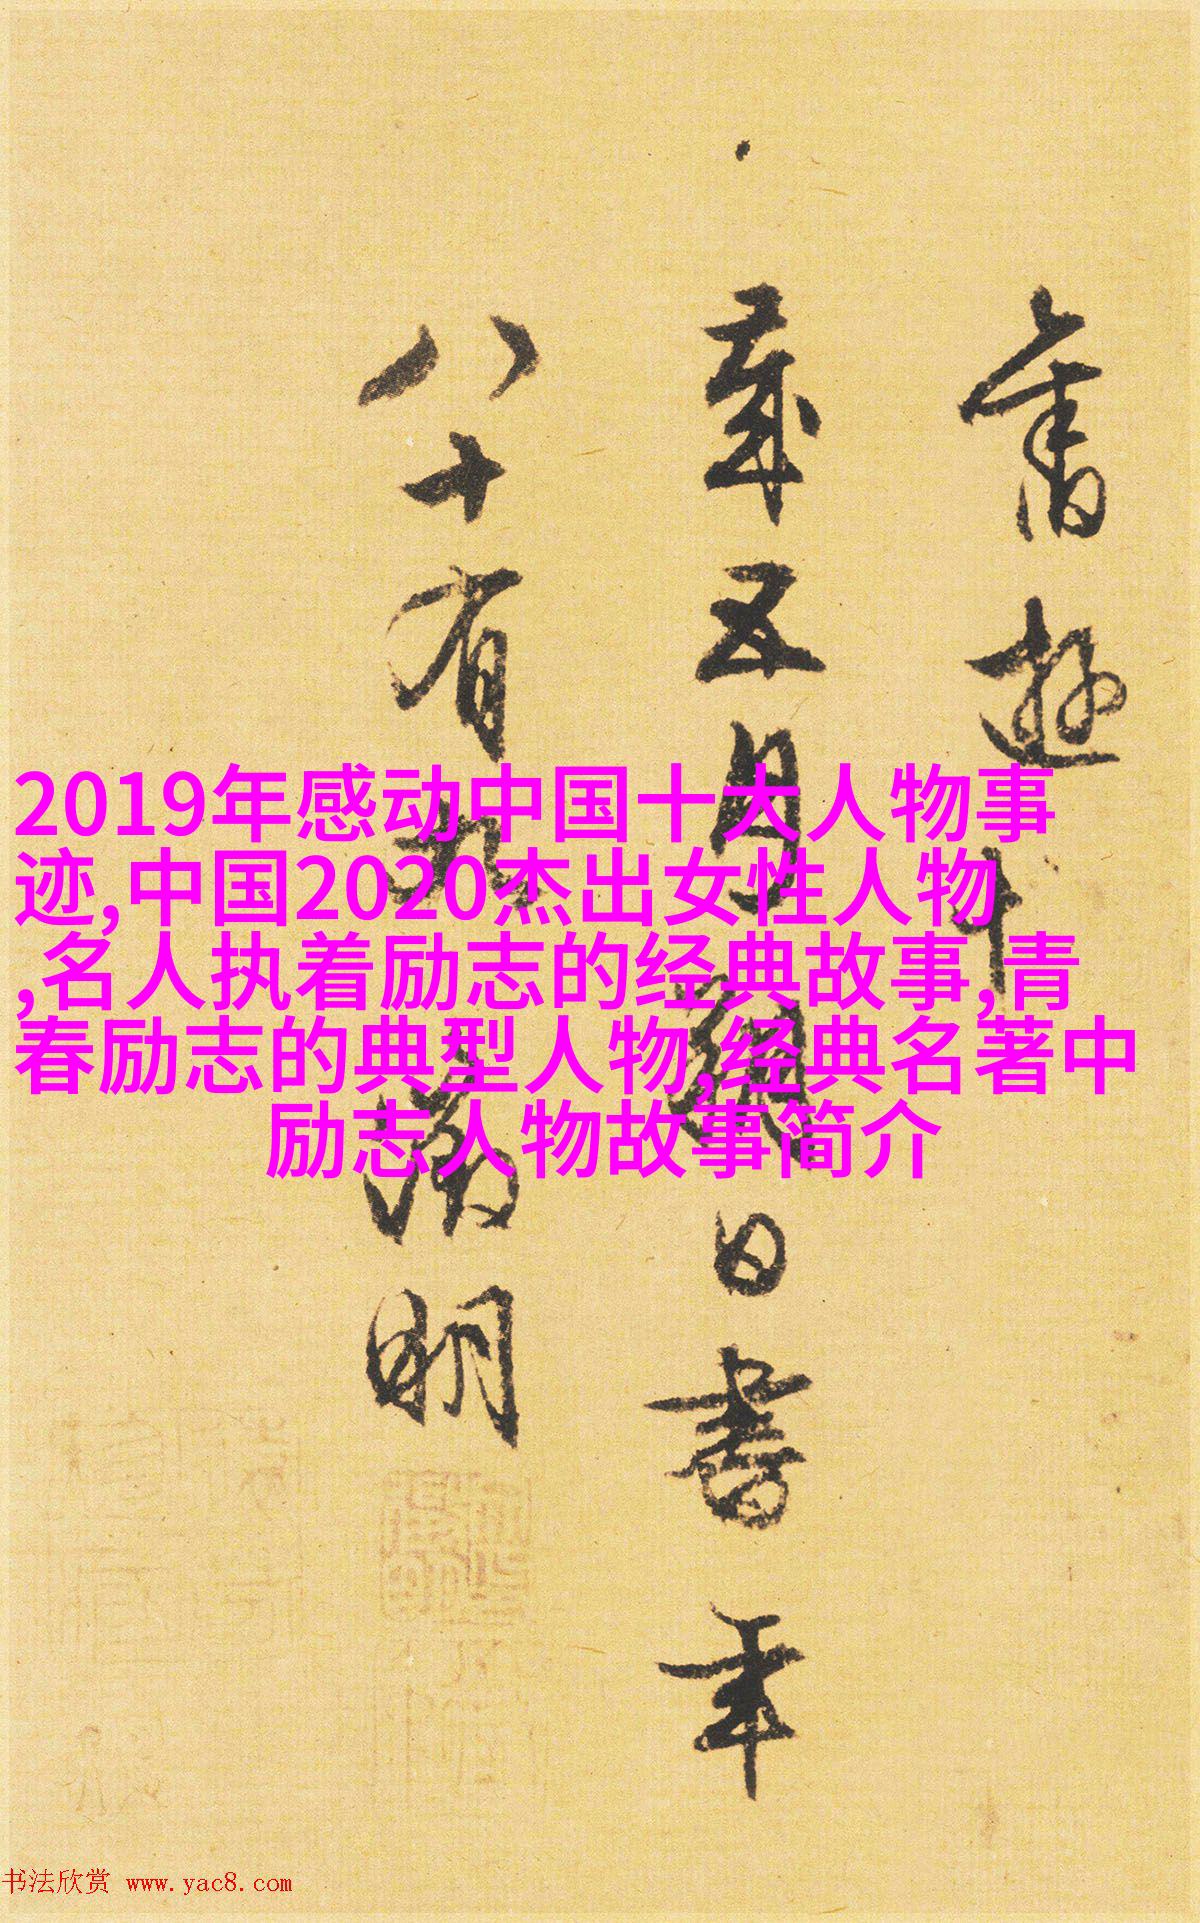 旧游
十
岁五月
朔日书年
八十有九
徵明
2019年感动中国十大人物事
迹,中国2020杰出女性人物
,名人执着励志的经典故事,青
春励志的典型人物,经典名著中
励志人物故事简介
书法欣赏 www.yac8.com